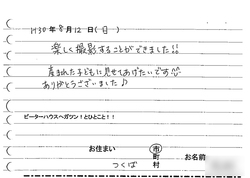 H30年8月12日(日)
楽しく撮影することができました!!
産まれた子どもに見せてあげたいです
ありがとうございました♪
ピーターハウスへガツン!とひとこと!!
お住まい 市町村 お名前
つくば